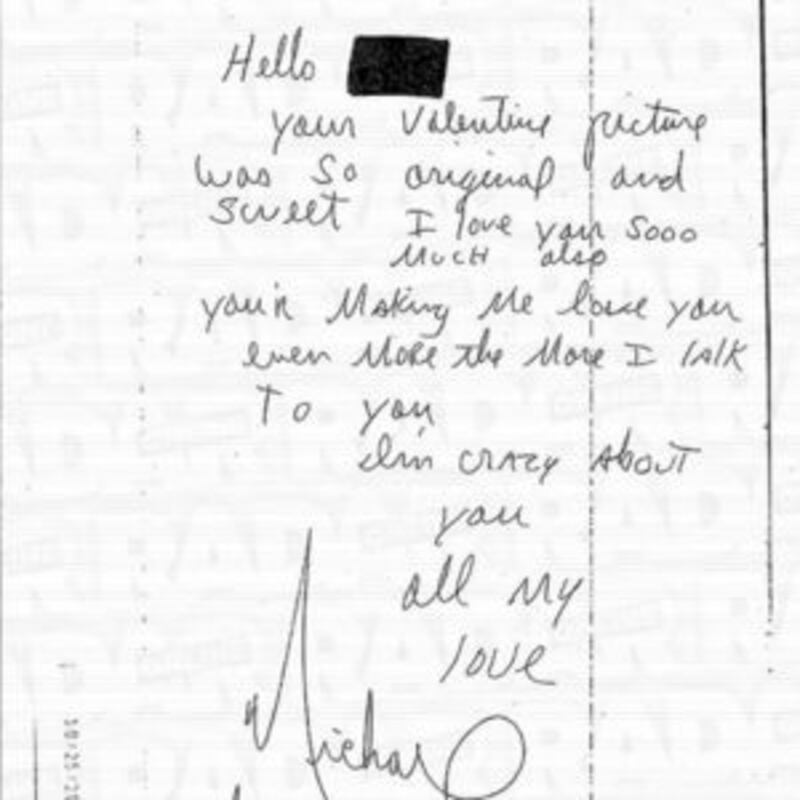 Hello
your Valentine picture
was so original and
sweet I love you sooo
much also
you'r Making Me love you
even More the More I talk
To you
I'm crazy About
you
all My
love
Michael